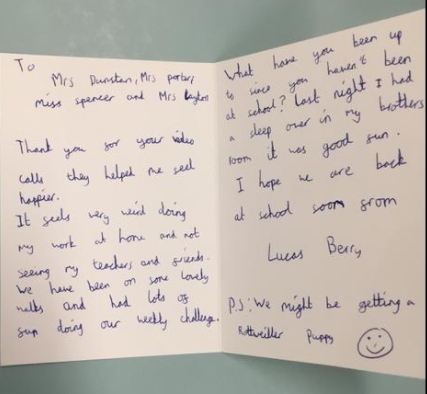 To
Mrs Dunstan, Mrs porter,
miss spencer and Mrs layton
Thank you for your video
calls they helped me feel
happier.
It feels very weird doing
my work at home and not
seeing my teachers and friends.
We have been on some lovely
walks and had lots of
fun doing our weekly challenge.
What have you been up
to since you haven't been
at school? Last night I had
a sleep over in my brothers
room it was good fun.
I hope we are back
at school soon from
Lucas Berry
P.S: We might be getting a
Rottweiller Puppy